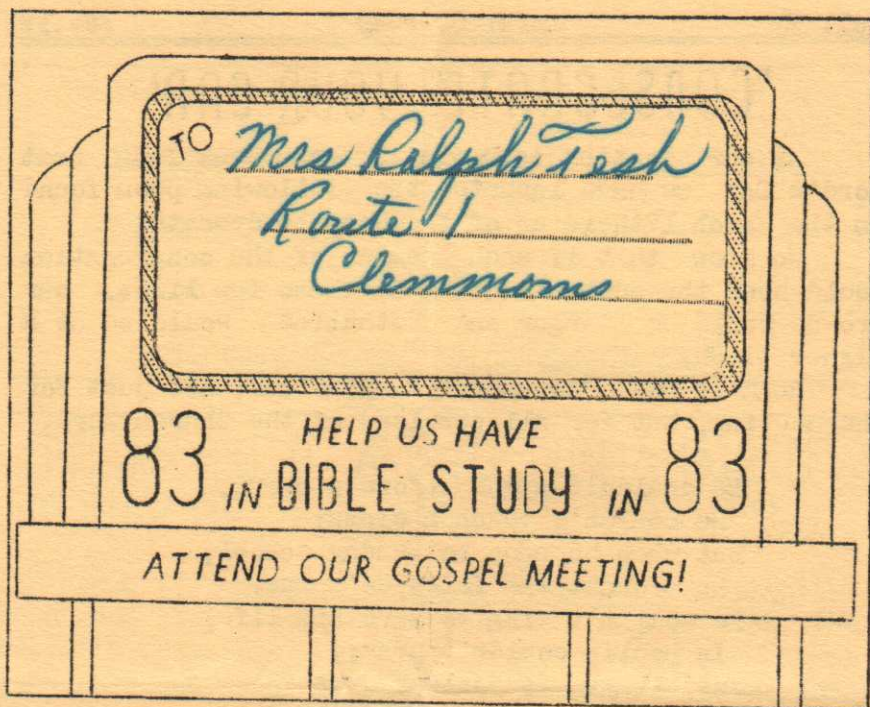 TO Mrs Ralph Tesh
Route 1
Clemmons
83 HELP US HAVE 83
IN BIBLE STUDY IN
ATTEND OUR GOSPEL MEETING!